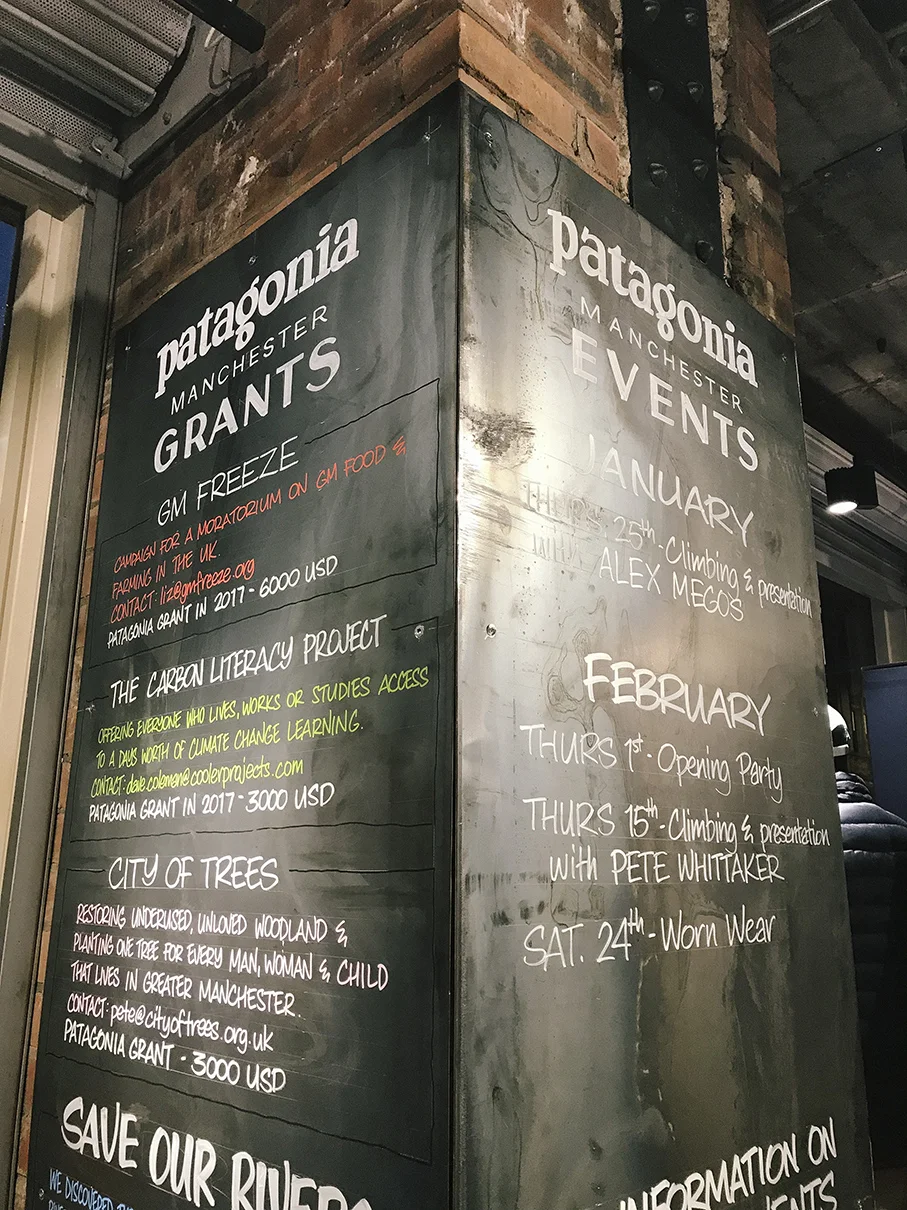 patagonia
MANCHESTER
GRANTS
GM FREEZE
CAMPAIGN FOR A MORATORIUM ON GM FOOD &
FARMING IN THE UK.
CONTACT: liz@gmfreeze.org
PATAGONIA GRANT IN 2017 - 6000 USD
THE CARBON LITERACY PROJECT
OFFERING EVERYONE WHO LIVES, WORKS OR STUDIES ACCESS
TO A DAYS WORTH OF CLIMATE CHANGE LEARNING.
CONTACT: dave.coleman@coolerprojects.com
PATAGONIA GRANT IN 2017 - 3000 USD
CITY OF TREES
RESTORING UNDERUSED, UNLOVED WOODLAND &
PLANTING ONE TREE FOR EVERY MAN, WOMAN & CHILD
THAT LIVES IN GREATER MANCHESTER.
CONTACT: pete@cityoftrees.org.uk
PATAGONIA GRANT - 3000 USD
SAVE OUR RIVERS
WE DISCOVERED
patagonia
MANCHESTER
EVENTS
JANUARY
THURS. 25th - Climbing & presentation
WITH ALEX MEGOS
FEBRUARY
THURS 1st - Opening Party
THURS 15th - Climbing & presentation
with PETE WHITTAKER
SAT. 24th - Worn Wear
INFORMATION ON